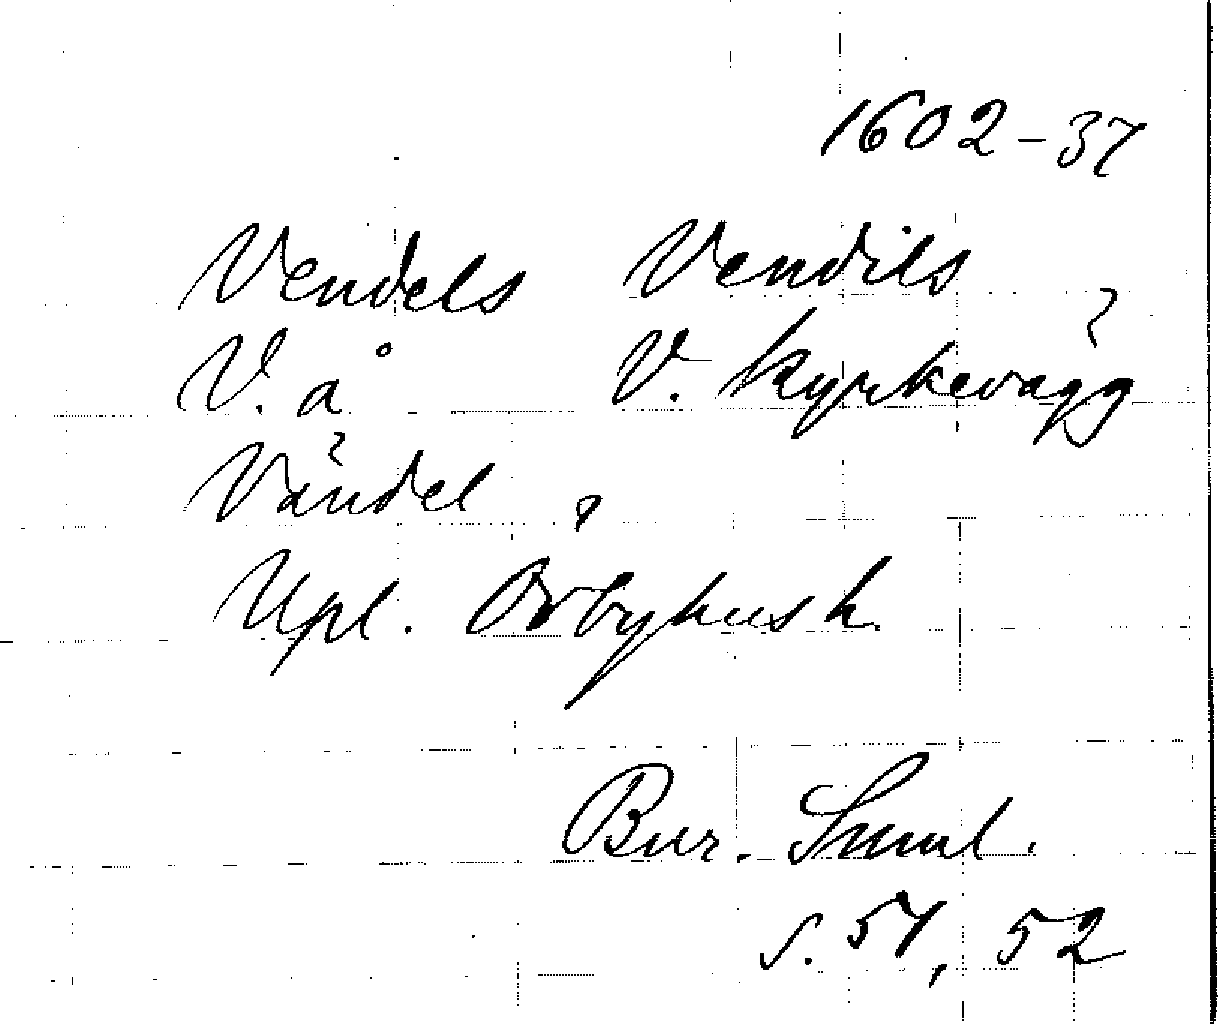 1602-37
Vendels Vendils
V. å V. kyrkevägg
Vändel
Upl. Örbyhus h.
Bur. Suml.
s. 51, 52